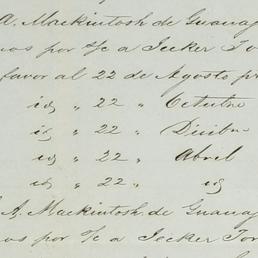 A. Mackintosh de Guanaj
nos por o/c a Jecker Tor
favor al 22 de Agosto pr
id „ 22 „ Octubre
id „ 22 „ Dicibre
id „ 22 „ Abril
id „ 22 „ id
A. Mackintosh de Guanaj
os por o/c a Jecker Tor